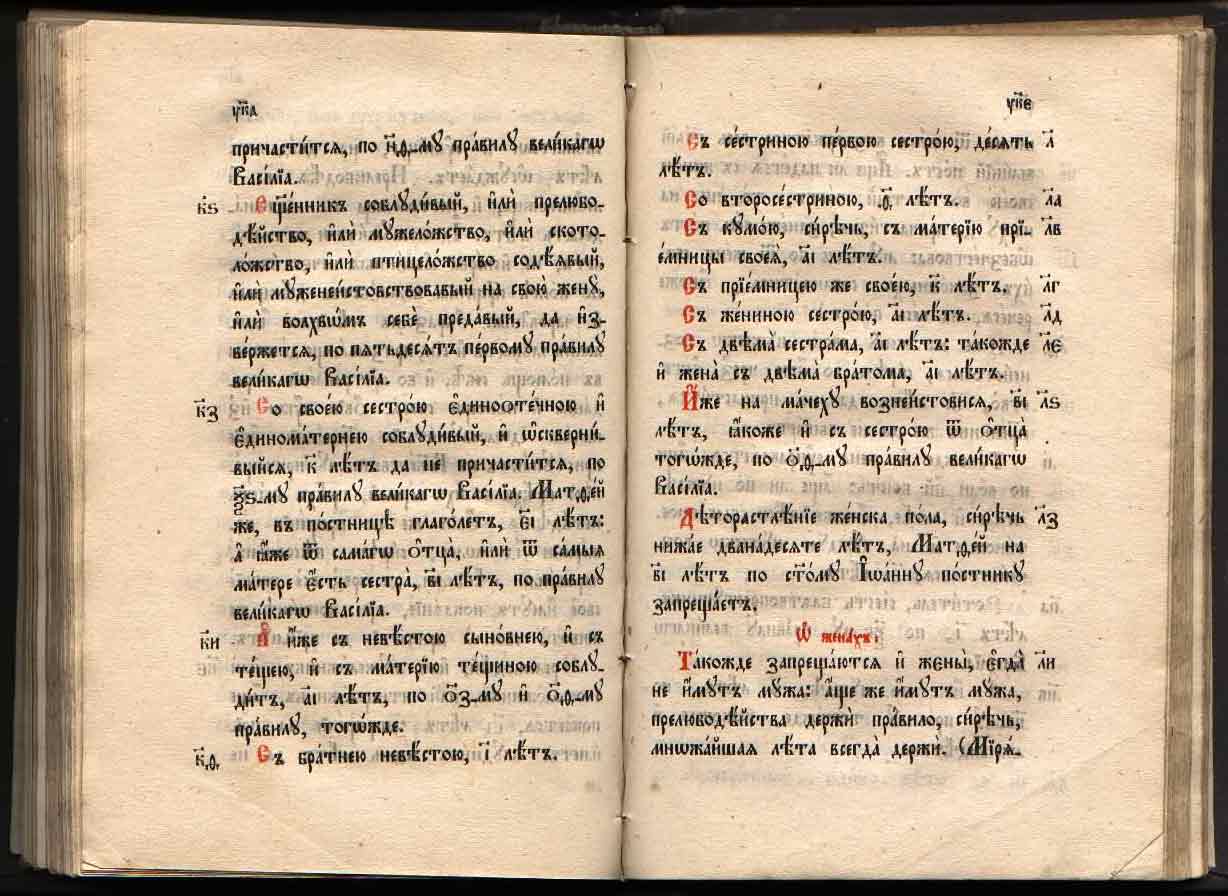 у҃кд
причасти́тсѧ, по н҃ѳ-му пра́вилꙋ вели́кагѡ
Васі́лїа.
к҃ѕ Сщ҃е́нникъ соблꙋди́вый, и҆лѝ прелюбо-
дѣ́йство, и҆лѝ мꙋжело́жство, и҆лѝ ското-
ло́жство, и҆лѝ птицело́жство содѣ́ѧвый,
и҆лѝ мꙋженеи́стовствовавый на свою̀ женꙋ̀,
и҆лѝ волхвѡ́мъ себѐ преда́вый, да и҆з-
ве́ржетсѧ, по пѧтьдесѧ́тъ пе́рвомꙋ пра́вилꙋ
вели́кагѡ Васі́лїа.
к҃з Со свое́ю сестро́ю є҆диноѻте́чною и҆
є҆динома́тернею соблꙋди́вый, и҆ ѡ҆скверни́-
выйсѧ, к҃ лѣ́тъ да не причасти́тсѧ, по
ѯ҃ѕ-мꙋ пра́вилꙋ вели́кагѡ Васі́лїа. Матѳе́й
же, въ по́стницѣ глаго́летъ, є҃і лѣ́тъ:
а҆ ꙗ҆́же ѿ самагѡ ѻ҆тца̀, и҆лѝ ѿ са́мыѧ
ма́тере є҆́сть сестра̀, в҃і лѣ́тъ, по пра́вилꙋ
вели́кагѡ Васі́лїа.
к҃и А҆ и҆́же съ невѣ́стою сыно́внею, и҆ съ
те́щею, и҆ съ ма́терїю те́щиною соблꙋ-
ди́тъ, а҃і лѣ́тъ, по о҃з-мꙋ и҆ о҃ѳ-мꙋ
пра́вилꙋ, тогѡ́жде.
к҃ѳ Съ бра́тнею невѣ́стою, і҃ лѣ́тъ.
у҃ке
Съ се́стриною пе́рвою сестро́ю, де́сѧть л҃
лѣ́тъ.
Со второсе́стриною, ѳ҃ лѣ́тъ. л҃а
Съ кꙋмо́ю, си́рѣчь, съ ма́терїю прї- л҃в
е́мницы своеѧ̀, а҃і лѣ́тъ.
Съ прїе́мницею же свое́ю, к҃ лѣ́тъ. л҃г
Съ же́ниною сестро́ю, а҃і лѣ́тъ. л҃д
Съ двѣма̀ сестра́ма, а҃і лѣ́тъ: та́кожде л҃е
и҆ жена̀ съ двѣма̀ бра́тома, а҃і лѣ́тъ.
И҆́же на ма́чехꙋ возне́истовисѧ, в҃і л҃ѕ
лѣ́тъ, ꙗ҆́коже и҆ съ сестро́ю ѿ ѻ҆тца̀
тогѡ́жде, по о҃ѳ-мꙋ пра́вилꙋ вели́кагѡ
Васі́лїа.
Дѣторастлѣ́нїе же́нска по́ла, си́рѣчь л҃з
нижа́е двана́десѧте лѣ́тъ, Матѳе́й на
в҃і лѣ́тъ по ст҃о́мꙋ І҆ѡа́ннꙋ по́стникꙋ
запреща́етъ.
Ѡ҆ жена́хъ:
Та́кожде запреща́ютсѧ и҆ жены̀, є҆гда̀ л҃и
не и҆́мꙋтъ мꙋ́жа: а҆́ще же и҆́мꙋтъ мꙋ́жа,
прелюбодѣ́йства держѝ пра́вило, си́рѣчь,
мнѡжа́йшаѧ лѣ́та всегда̀ держѝ. Мїрѧ-